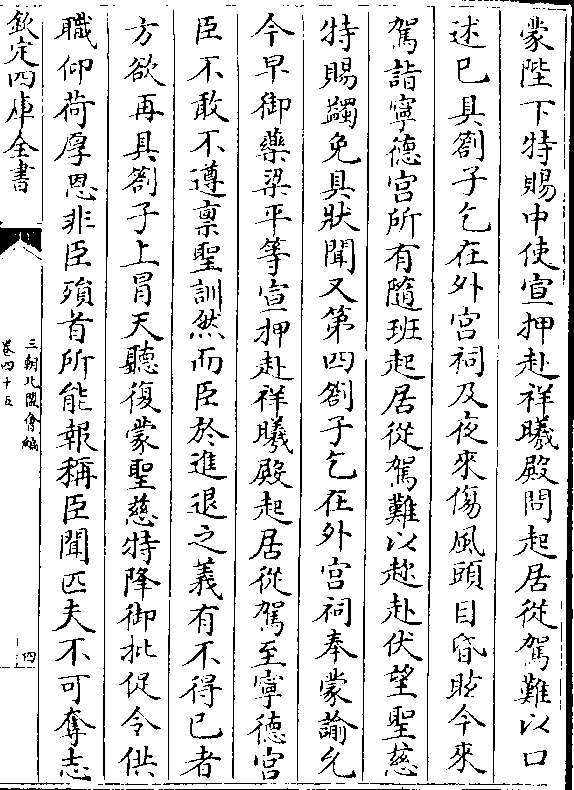 蒙陛下特賜中使宣押赴祥曦殿問起居從駕難以口
述已具劄子乞在外宫祠及夜來傷風頭目昏眩今來
駕詣寧德宫所有隨班起居從駕難以趂赴伏望聖慈
特賜蠲免具狀聞又第四劄子乞在外宫祠奉蒙諭允
今早御藥梁平等宣押赴祥曦殿起居從駕至寧德宫
臣不敢不遵禀聖訓然而臣於進退之義有不得已者
方欲再具劄子上冒天聽復蒙聖慈特降御批促令供
職仰荷厚恩非臣殞首所能報稱臣聞匹夫不可奪志
欽定四庫全書
三朝北盟會編
卷四十五
四